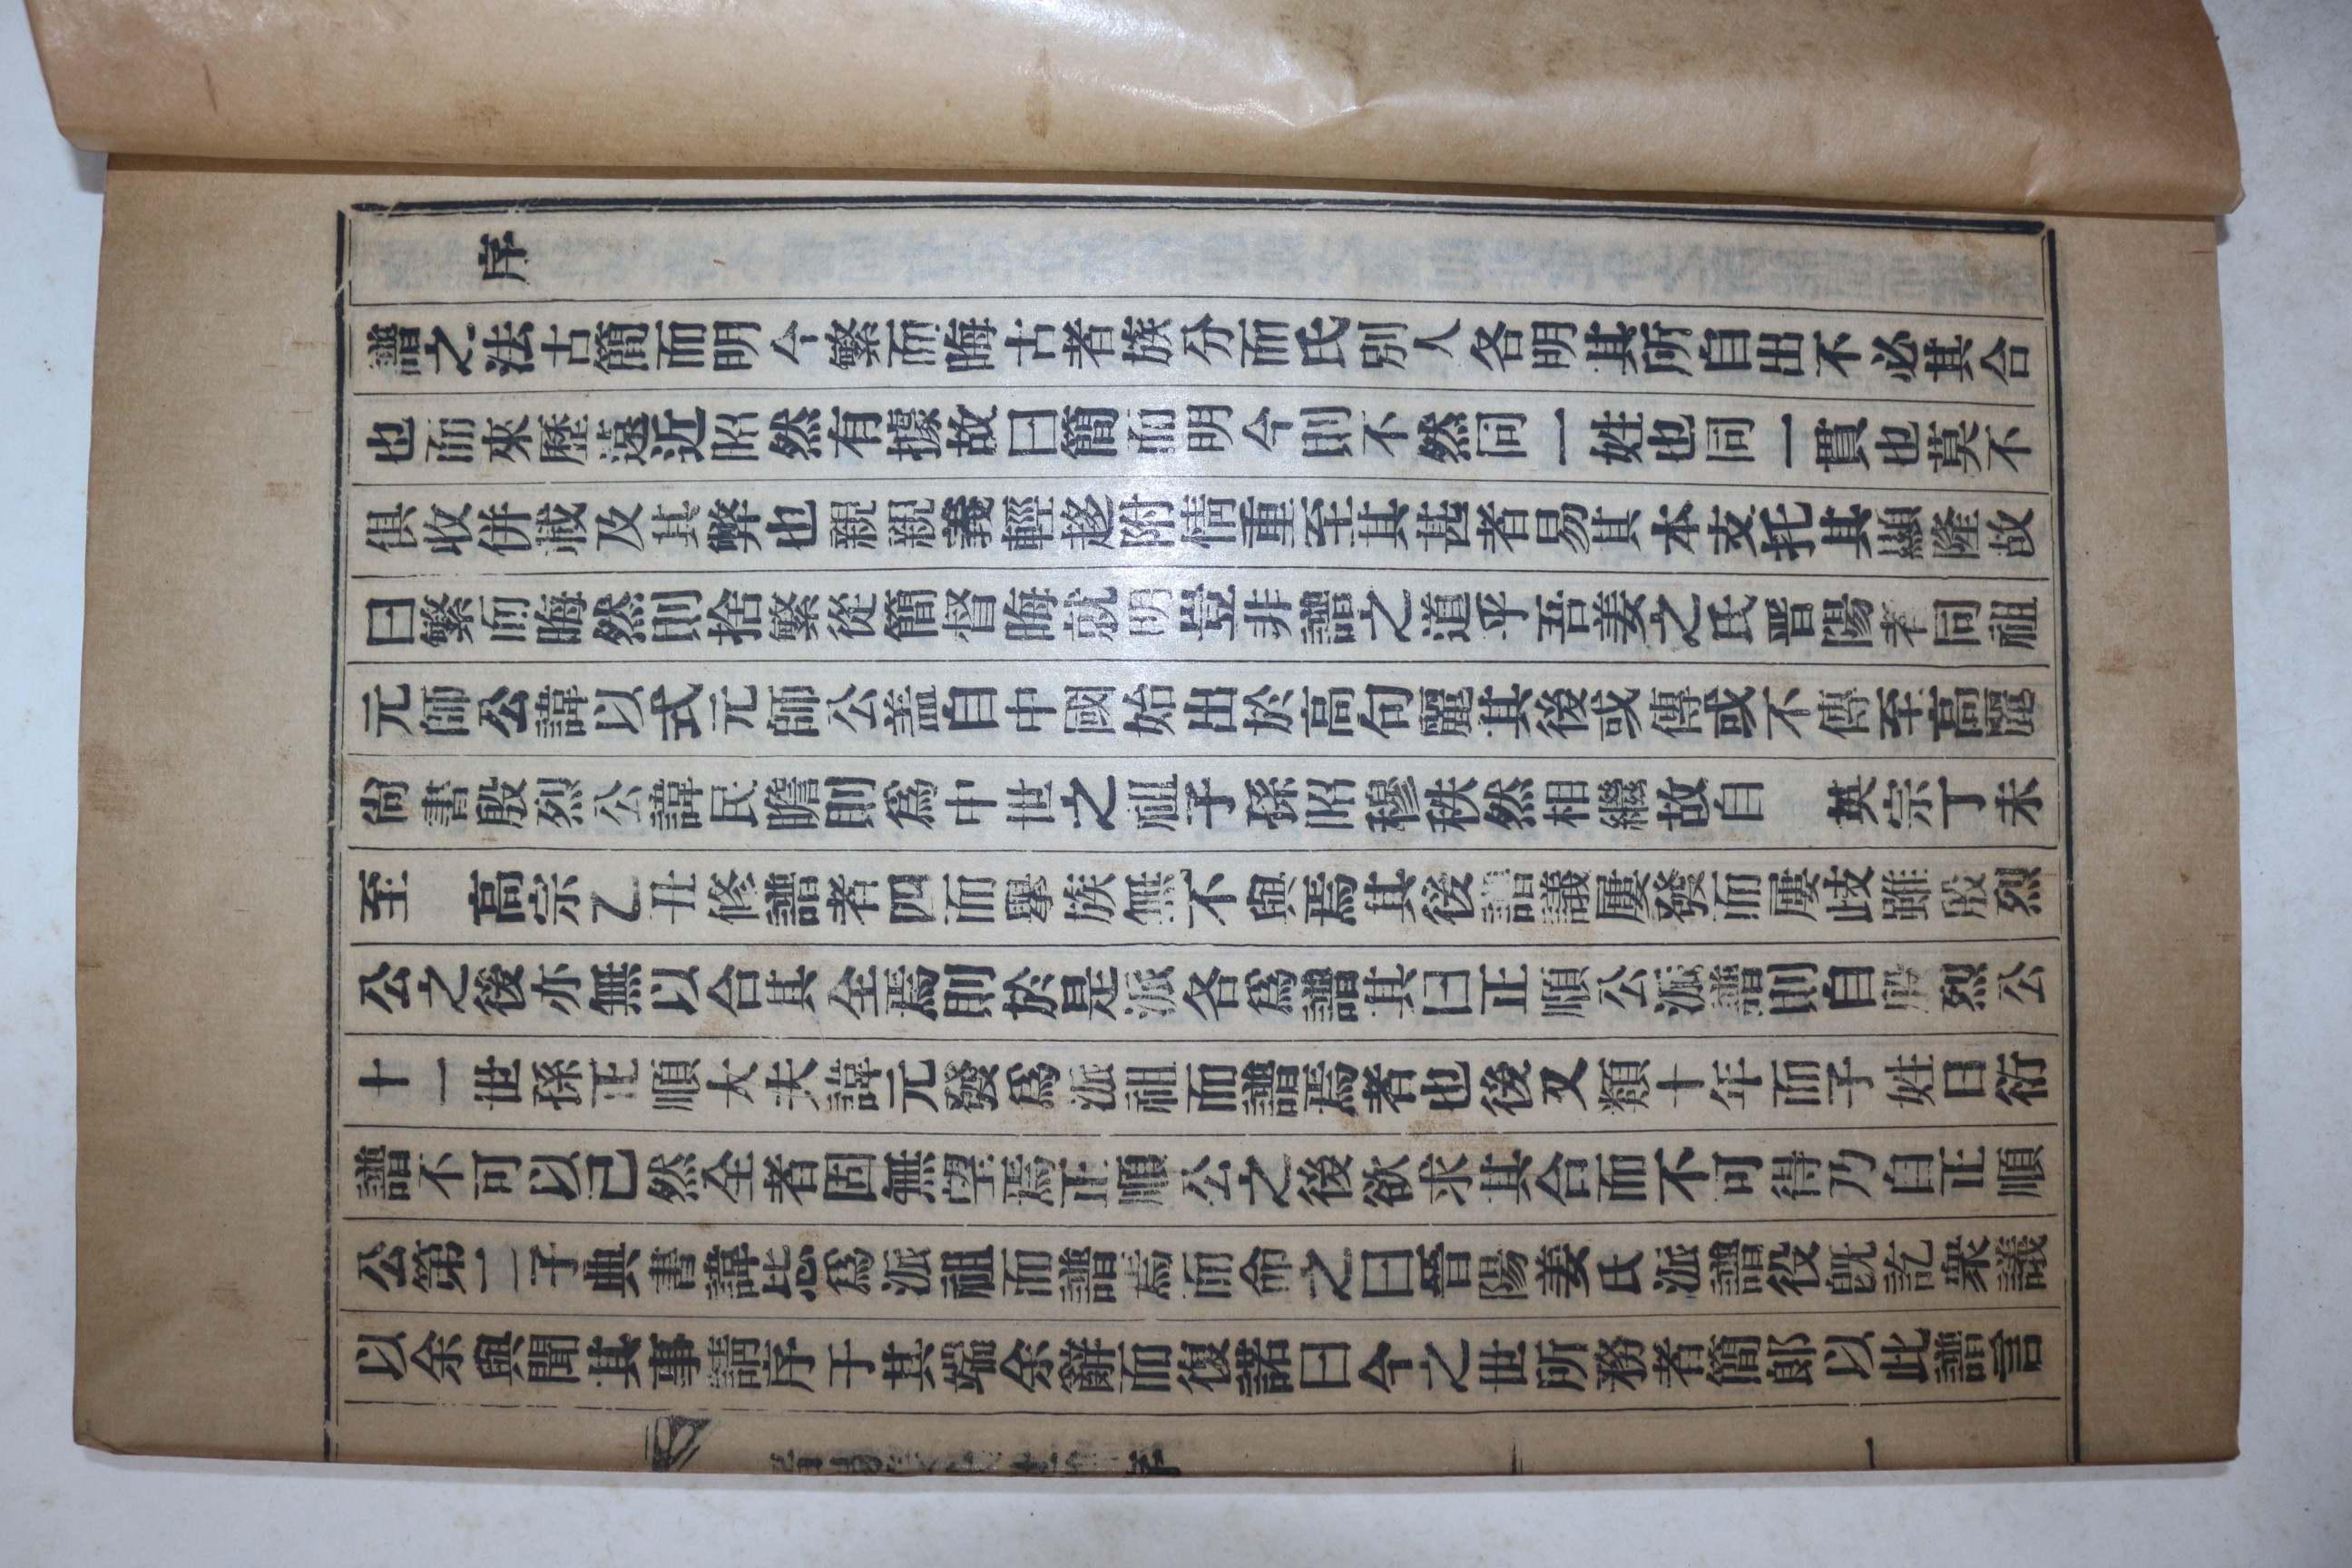 序
譜之法古簡而明今繁而晦古者族分而氏別人各明其所自出不必其合
也而來歷遠近昭然有據故曰簡而明今則不然同一姓也同一貫也莫不
俱收併載及其弊也親親義輕趍附情重至其甚者易其本支托其顯隆故
曰繁而晦然則捨繁從簡督晦就明豈非譜之道乎吾姜之氏晋陽者同祖
元帥公諱以式元帥公盖自中國始出於高句麗其後或傳或不傳至高麗
尙書殷烈公諱民瞻則爲中世之祖子孫昭穆秩然相繼故自 英宗丁未
至 高宗乙丑修譜者四而擧族無不與焉其後譜議屢發而屢歧雖殷烈
公之後亦無以合其全焉則於是派各爲譜其曰正順公派譜則自殷烈公
十一世孫正順大夫諱元發爲派祖而譜焉者也後又類十年而子姓日衍
譜不可以已然全者固無望焉正順公之後欲求其合而不可得乃自正順
公第二子典書諱比忠爲派祖而譜焉而命之曰晉陽姜氏派譜役旣訖衆議
以余與聞其事請序于其端余辭而復諾曰今之世所務者簡郞以此譜言